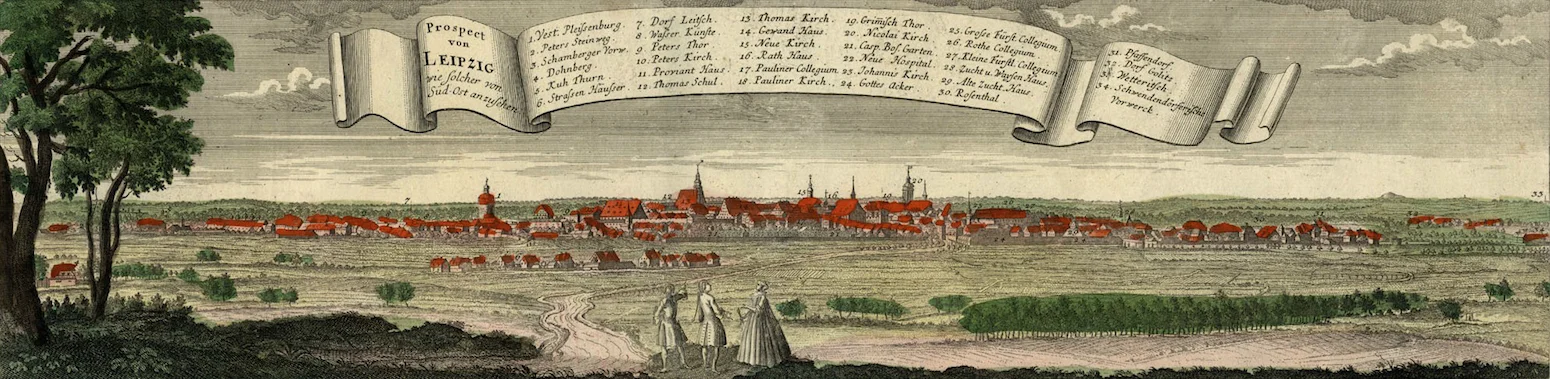 Prospect
von
LEIPZIG
wie solcher von
Süd-Ort anzusehen
1. Vest. Pleissenburg.
2. Peters Steinweg.
3. Schamberger Vorw.
4. Dohnberg.
5. Kuh Thurn.
6. Strassen Häusser.
7. Dorf Leitsch.
8. Wasser Künste.
9. Peters Thor.
10. Peters Kirch.
11. Proviant Haus.
12. Thomas Schul.
13. Thomas Kirch.
14. Gewand Haus.
15. Neue Kirch.
16. Rath Haus
17. Pauliner Collegium.
18. Pauliner Kirch.
19. Grimisch Thor.
20. Nicolai Kirch.
21. Casp. Bos. Garten
22. Neue Hospital.
23. Johannis Kirch.
24. Gottes Acker.
25. Grosse Fürst. Collegium.
26. Rothe Collegium
27. Kleine Fürstl. Collegium
28. Zucht u. Waysen Haus.
29. Alte Zucht. Haus.
30. Rosenthal.
31. Pfaffendorf.
32. Dorf Gohits
33. Wetteritsch.
34. Schwendendörfferische
Vorwerck.
7
1
12
15
16
19
20
33.